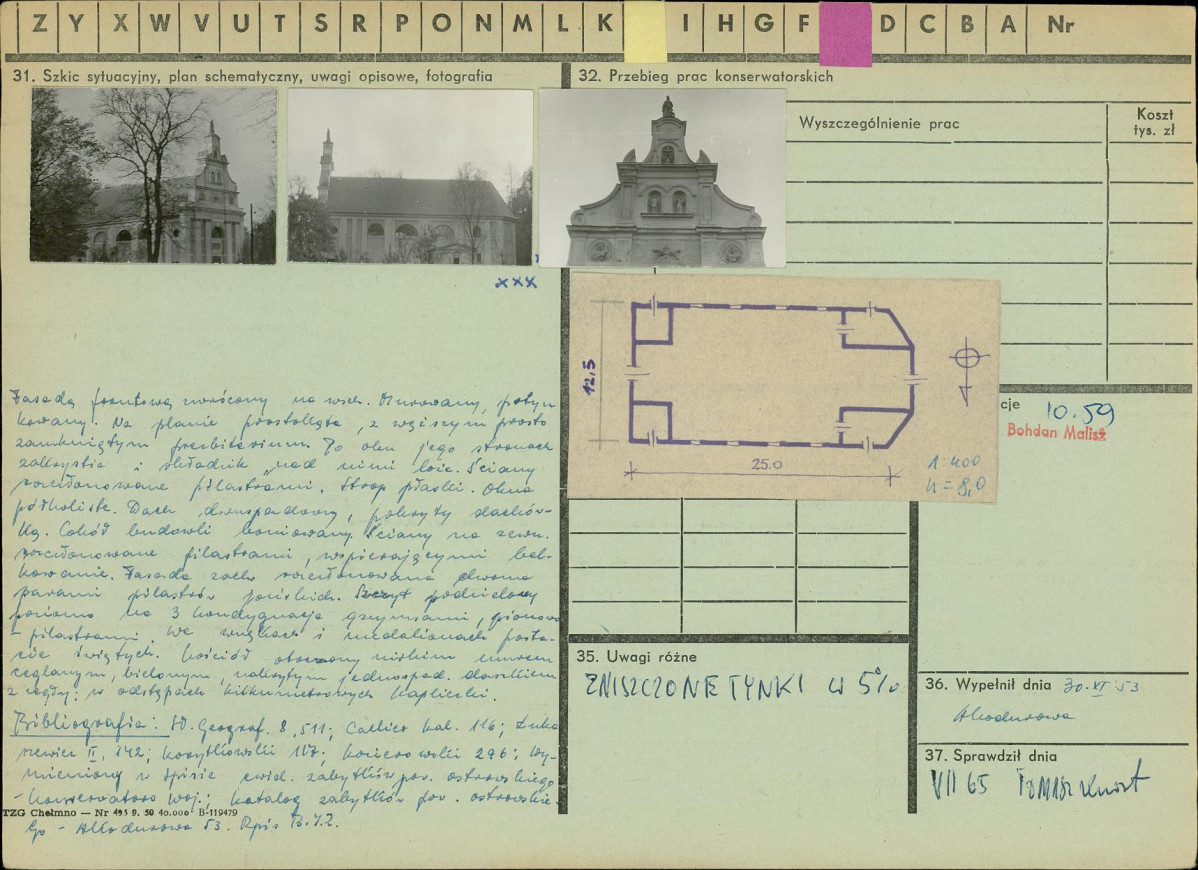 Z Y X W V U T S R P O N M L K I H G F D C B A Nr
31. Szkic sytuacyjny, plan schematyczny, uwagi opisowe, fotografia
32. Przebieg prac konserwatorskich
Wyszczególnienie prac
Koszt
tys. zł
xxx
12,5
25.0
1:400
h = 8,0
cje
10.59
Bohdan Malisz
Fasadą frontową zwrócony na wsch. Murowany, potyn
kowany. Na planie prostokąta, z węższym prosto
zamkniętym prezbiterium. Po obu jego stronach
zakrystia i składzik, nad nimi loże. Ściany
rozczłonowane pilastrami. Strop płaski. Okna
półkoliste. Dach dwuspadowy, pokryty dachów-
ką. Cokół budowli boniowany. Ściany na zewn.
rozczłonowane pilastrami, wspierającymi bel-
kowanie. Fasada zach. rozczłonowana dwoma
parami pilastrów jońskich. Szczyt podzielony
poziomo na 3 kondygnacje gzymsami, pionowo
- pilastrami. We wnękach i medalionach posta-
cie świętych. Kościół otoczony niskim murem
ceglanym, bielonym, nakrytym jednospad. daszkiem
z cegły; w odstępach kilkumetrowych kapliczki.
Bibliografia: Sł. Geograf. 8, 511; Callier kal. 116; Łuka
szewicz II, 142; Kozytkowski 107; Kocierowski 276; Wy-
mieniony w spisie ewid. zabytków pow. ostrowskiego
- Konserwatora woj.; Katalog zabytków pow. ostrowskie
go - A. Kodurowa 53. Rpis B.I.Z.
TZG Chełmno — Nr 495 9. 50 40.000 B-119479
35. Uwagi różne
ZNISZCZONE TYNKI W 5%
36. Wypełnił dnia 30.XI.53
A. Kodurowa
37. Sprawdził dnia
VII 65